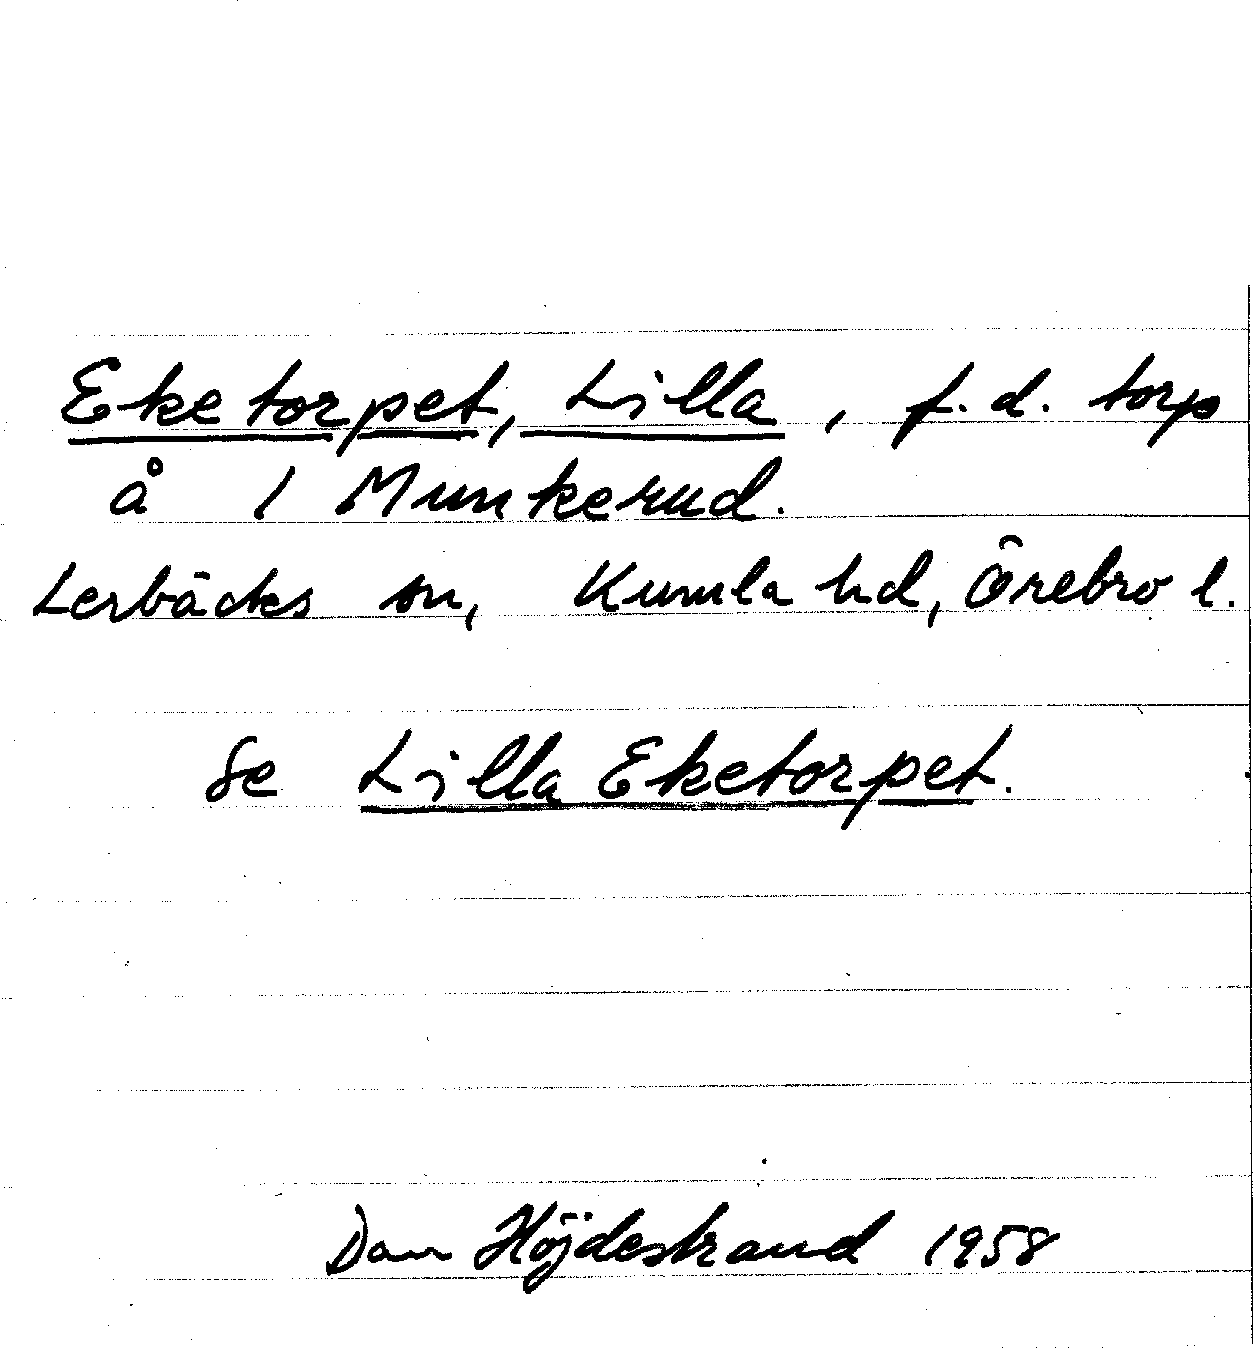 Eketorpet, Lilla, f.d. torp
å 1 Munkerud.
Lerbäcks sn, Kumla hd, Örebro l.
Se Lilla Eketorpet.
Dan Höjdestrand 1958